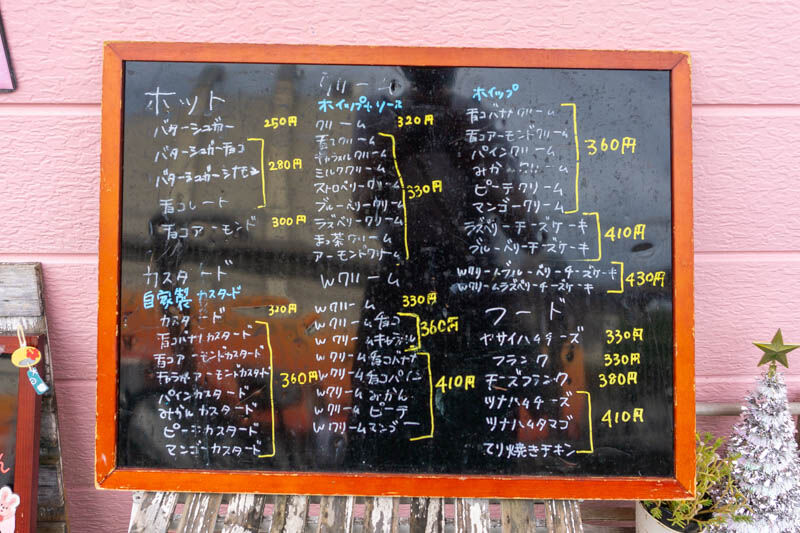 ホット
バターシュガー 250円
バターシュガーチョコ
バターシュガーシナモン 280円
チョコレート
チョコアーモンド 300円
カスタード
自家製カスタード
カスタード 320円
チョコバナナカスタード
チョコアーモンドカスタード
キャラメルアーモンドカスタード
パインカスタード 360円
みかんカスタード
ピーチカスタード
マンゴーカスタード
クリーム
ホイップ+ソース
クリーム 320円
チョコクリーム
キャラメルクリーム
ミルククリーム
ストロベリークリーム 330円
ブルーベリークリーム
ラズベリークリーム
まっ茶クリーム
アーモンドクリーム
Wクリーム
Wクリーム 330円
Wクリームチョコ 360円
Wクリームキャラメル
Wクリームチョコバナナ
Wクリームチョコパイン 410円
Wクリームみかん
Wクリームピーチ
Wクリームマンゴー
ホイップ
チョコバナナクリーム
チョコアーモンドクリーム
パインクリーム 360円
みかんクリーム
ピーチクリーム
マンゴークリーム
ラズベリーチーズケーキ 410円
ブルーベリーチーズケーキ
Wクリームブルーベリーチーズケーキ 430円
Wクリームラズベリーチーズケーキ
フード
ヤサイハムチーズ 330円
フランク 330円
チーズフランク 380円
ツナハムチーズ
ツナハムタマゴ 410円
てり焼きチキン